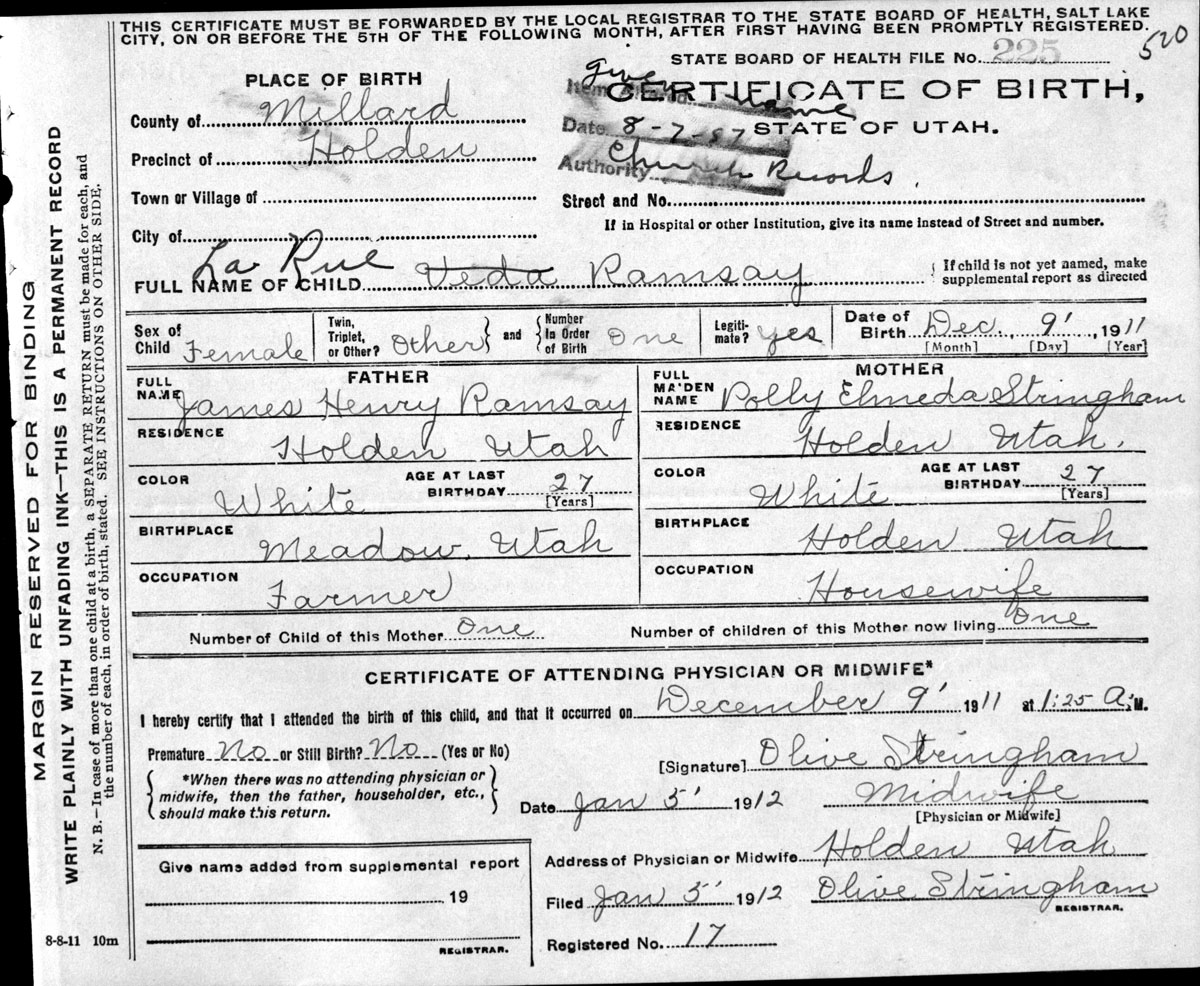 THIS CERTIFICATE MUST BE FORWARDED BY THE LOCAL REGISTRAR TO THE STATE BOARD OF HEALTH, SALT LAKE
CITY, ON OR BEFORE THE 5TH OF THE FOLLOWING MONTH, AFTER FIRST HAVING BEEN PROMPTLY REGISTERED.
520
STATE BOARD OF HEALTH FILE No. 225
PLACE OF BIRTH
CERTIFICATE OF BIRTH,
STATE OF UTAH.
Given Name
Date 8-7-57
Authority Church Records.
County of Millard
Precinct of Holden
Town or Village of
Street and No.
If in Hospital or other Institution, give its name instead of Street and number.
City of
La Rue
FULL NAME OF CHILD Veda Ramsay
{ If child is not yet named, make
supplemental report as directed
Sex of Child Female
Twin, Triplet, or Other? Other } and { Number In Order of Birth One
Legitimate? yes
Date of Birth Dec. 9' 1911
[Month] [Day] [Year]
FATHER
FULL NAME James Henry Ramsay
RESIDENCE Holden Utah
COLOR White AGE AT LAST BIRTHDAY 27 [Years]
BIRTHPLACE Meadow, Utah
OCCUPATION Farmer
MOTHER
FULL MAIDEN NAME Polly Elmeda Stringham
RESIDENCE Holden Utah.
COLOR White AGE AT LAST BIRTHDAY 27 [Years]
BIRTHPLACE Holden Utah
OCCUPATION Housewife
Number of Child of this Mother One Number of children of this Mother now living One
CERTIFICATE OF ATTENDING PHYSICIAN OR MIDWIFE*
I hereby certify that I attended the birth of this child, and that it occurred on December 9' 1911 at 1:25 A.M.
Premature No or Still Birth? No (Yes or No)
{ *When there was no attending physician or
midwife, then the father, householder, etc.,
should make this return. }
[Signature] Olive Stringham
Date Jan 5' 1912 Midwife
[Physician or Midwife]
Address of Physician or Midwife Holden Utah
Filed Jan 5' 1912 Olive Stringham
REGISTRAR.
Registered No. 17
Give name added from supplemental report
19
REGISTRAR.
8-8-11 10m
MARGIN RESERVED FOR BINDING
WRITE PLAINLY WITH UNFADING INK—THIS IS A PERMANENT RECORD
N. B.—In case of more than one child at a birth, a SEPARATE RETURN must be made for each, and
the number of each, in order of birth, stated. SEE INSTRUCTONS ON OTHER SIDE.